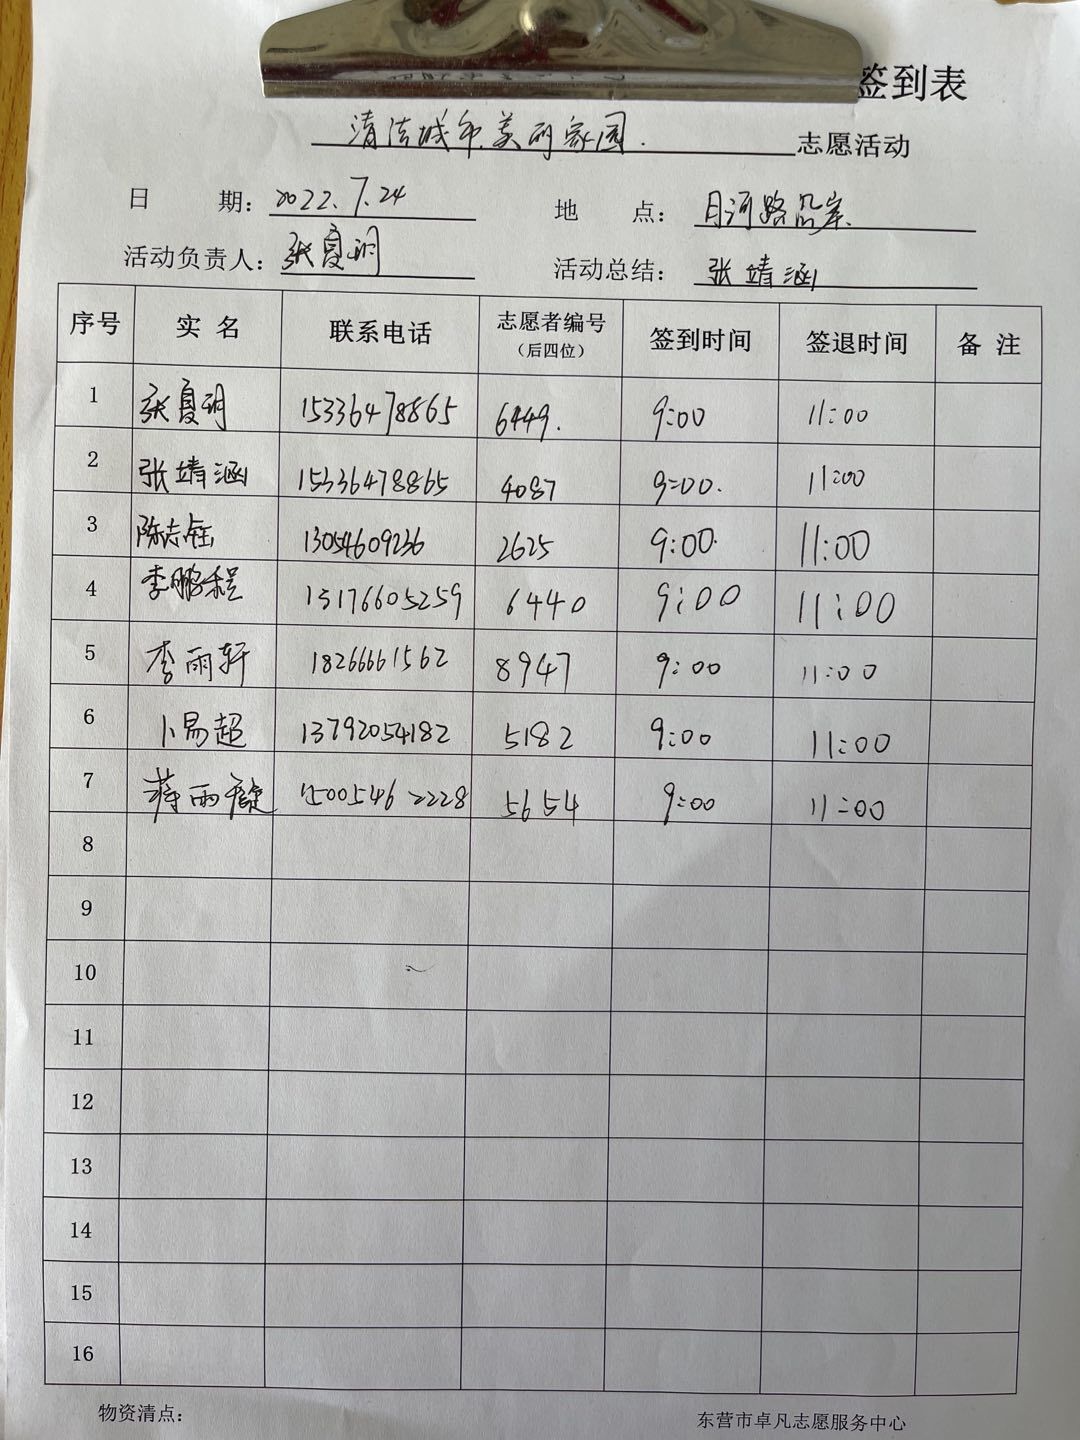 签到表
清洁城市美丽家园. 志愿活动
日 期: 2022.7.24 地 点: 月河路沿岸.
活动负责人: 张夏玥 活动总结: 张靖涵
序号 实 名 联系电话 志愿者编号(后四位) 签到时间 签退时间 备 注
1 张夏玥 15336478865 6449. 9:00 11:00
2 张靖涵 15336478865 4087 9:00. 11:00
3 陈志钰 13054609236 2625 9:00. 11:00
4 李鹏程 15176605259 6440 9:00 11:00
5 李雨轩 18266661562 8947 9:00 11:00
6 卜易超 13792054182 5182 9:00 11:00
7 蒋雨 15005462228 5654 9:00 11:00
8
9
10
11
12
13
14
15
16
物资清点: 东营市卓凡志愿服务中心